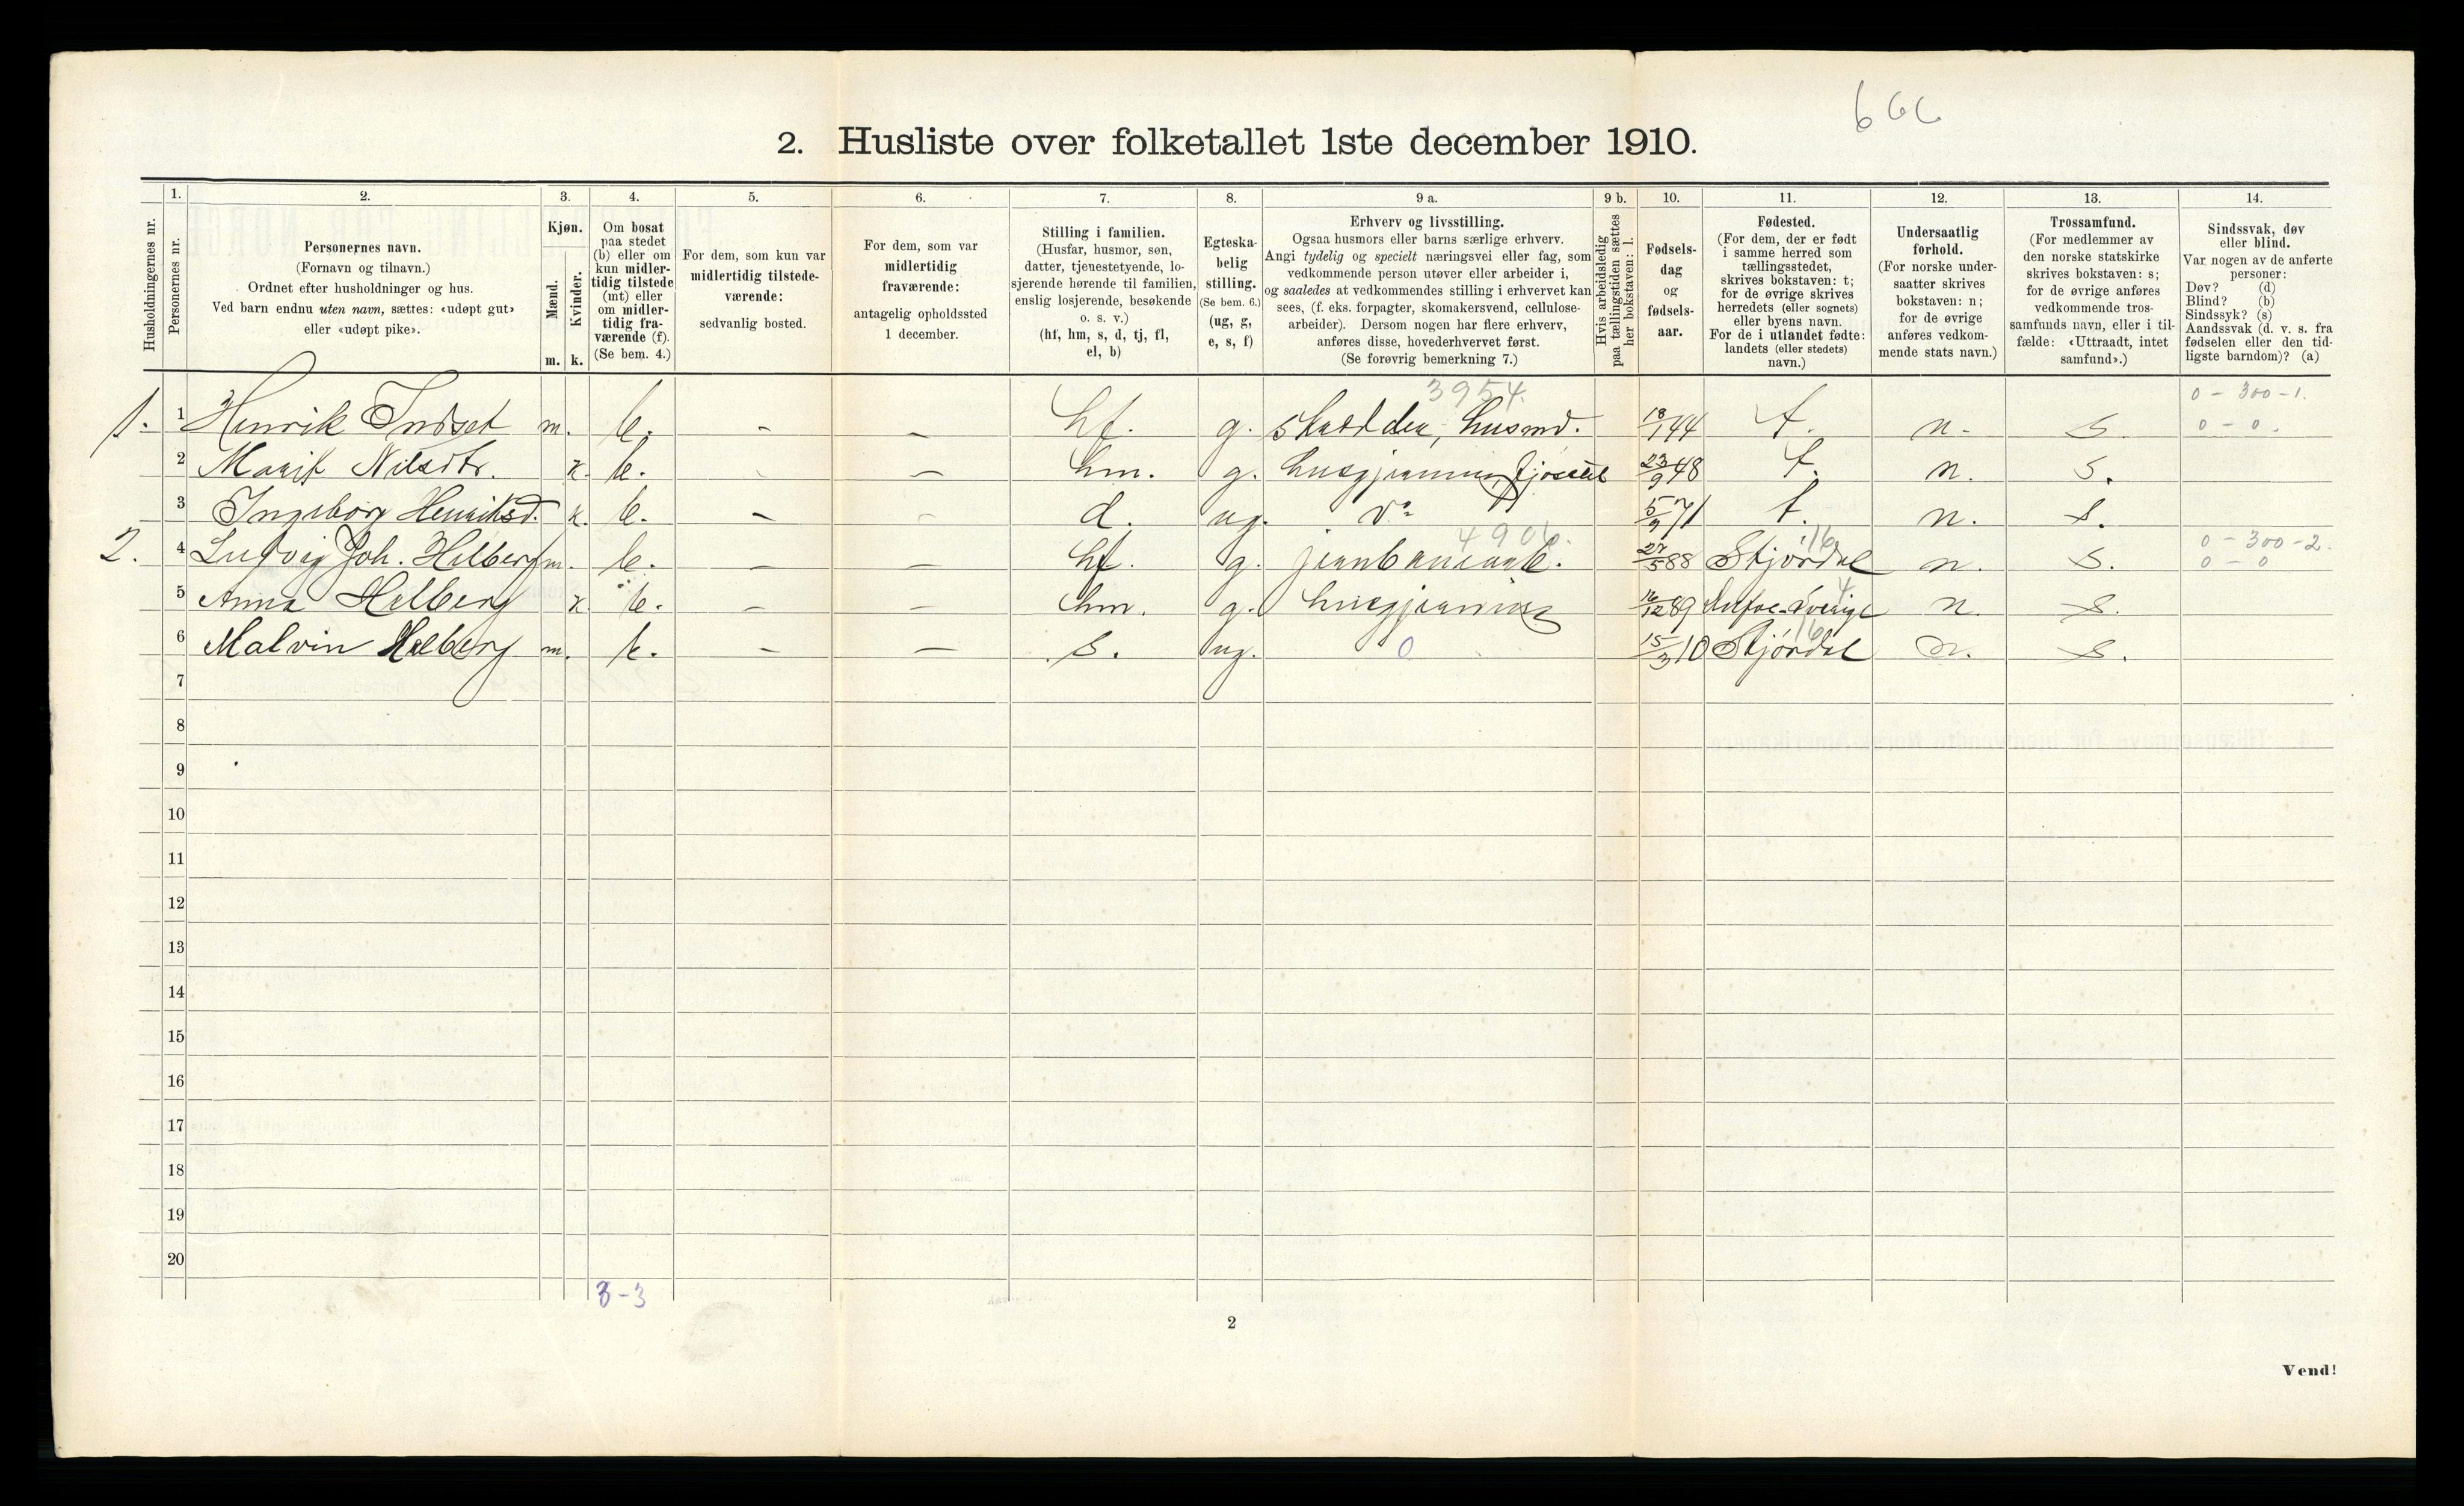 666
2. Husliste over folketallet 1ste december 1910.
1. 2. 3. 4. 5. 6. 7. 8. 9 a. 9 b. 10. 11. 12. 13. 14.
Husholdningernes nr.
Personernes nr.
Personernes navn.
(Fornavn og tilnavn.)
Ordnet efter husholdninger og hus.
Ved barn endnu uten navn, sættes: «udøpt gut»
eller «udøpt pike».
Kjøn.
Mænd.
Kvinder.
m. k.
Om bosat
paa stedet
(b) eller om
kun midler-
tidig tilstede
(mt) eller
om midler-
tidig fra-
værende (f).
(Se bem. 4.)
For dem, som kun var
midlertidig tilstede-
værende:
sedvanlig bosted.
For dem, som var
midlertidig
fraværende:
antagelig opholdssted
1 december.
Stilling i familien.
(Husfar, husmor, søn,
datter, tjenestetyende, lo-
sjerende hørende til familien,
enslig losjerende, besøkende
o. s. v.)
(hf, hm, s, d, tj, fl,
el, b)
Egteska-
belig
stilling.
(Se bem. 6.)
(ug, g,
e, s, f)
Erhverv og livsstilling.
Ogsaa husmors eller barns særlige erhverv.
Angi tydelig og specielt næringsvei eller fag, som
vedkommende person utøver eller arbeider i,
og saaledes at vedkommendes stilling i erhvervet kan
sees, (f. eks. forpagter, skomakersvend, cellulose-
arbeider). Dersom nogen har flere erhverv,
anføres disse, hovederhvervet først.
(Se forøvrig bemerkning 7.)
Hvis arbeidsledig
paa tællingstiden sættes
her bokstaven: l.
Fødsels-
dag
og
fødsels-
aar.
Fødested.
(For dem, der er født
i samme herred som
tællingsstedet,
skrives bokstaven: t;
for de øvrige skrives
herredets (eller sognets)
eller byens navn.
For de i utlandet fødte:
landets (eller stedets)
navn.)
Undersaatlig
forhold.
(For norske under-
saatter skrives
bokstaven: n;
for de øvrige
anføres vedkom-
mende stats navn.)
Trossamfund.
(For medlemmer av
den norske statskirke
skrives bokstaven: s;
for de øvrige anføres
vedkommende tros-
samfunds navn, eller i til-
fælde: «Uttraadt, intet
samfund».)
Sindssvak, døv
eller blind.
Var nogen av de anførte
personer:
Døv? (d)
Blind? (b)
Sindssyk? (s)
Aandssvak (d. v. s. fra
fødselen eller den tid-
ligste barndom)? (a)
3954. 0 - 300 - 1.
1. 1 Henrik Indset m. b. - - hf. g. husmd. 18/1 44 t. n. s. 0 - 0.
2 Marit Nilsdtr. k. b. - - hm. g. husgjerning, fjósstel 23/9 48 t. n. s.
3 Ingeborg Henriksd. k. b. - - d. ug. do 5/9 71 t. n. s.
4906. 16 0 - 300 - 2.
2. 4 Ludvig Joh. Helberg m. b. - - hf. g. jernbanearb. 27/5 88 Stjørdal n. s. 0 - 0
5 Anna Helberg k. b. - - hm. g. husgjerning 16/12 89 Sverige n. s.
16
6 Malvin Helberg m. b. - - s. ug. 0 15/3 10 Stjørdal n. s.
7
8
9
10
11
12
13
14
15
16
17
18
19
20
3-3
2
Vend!